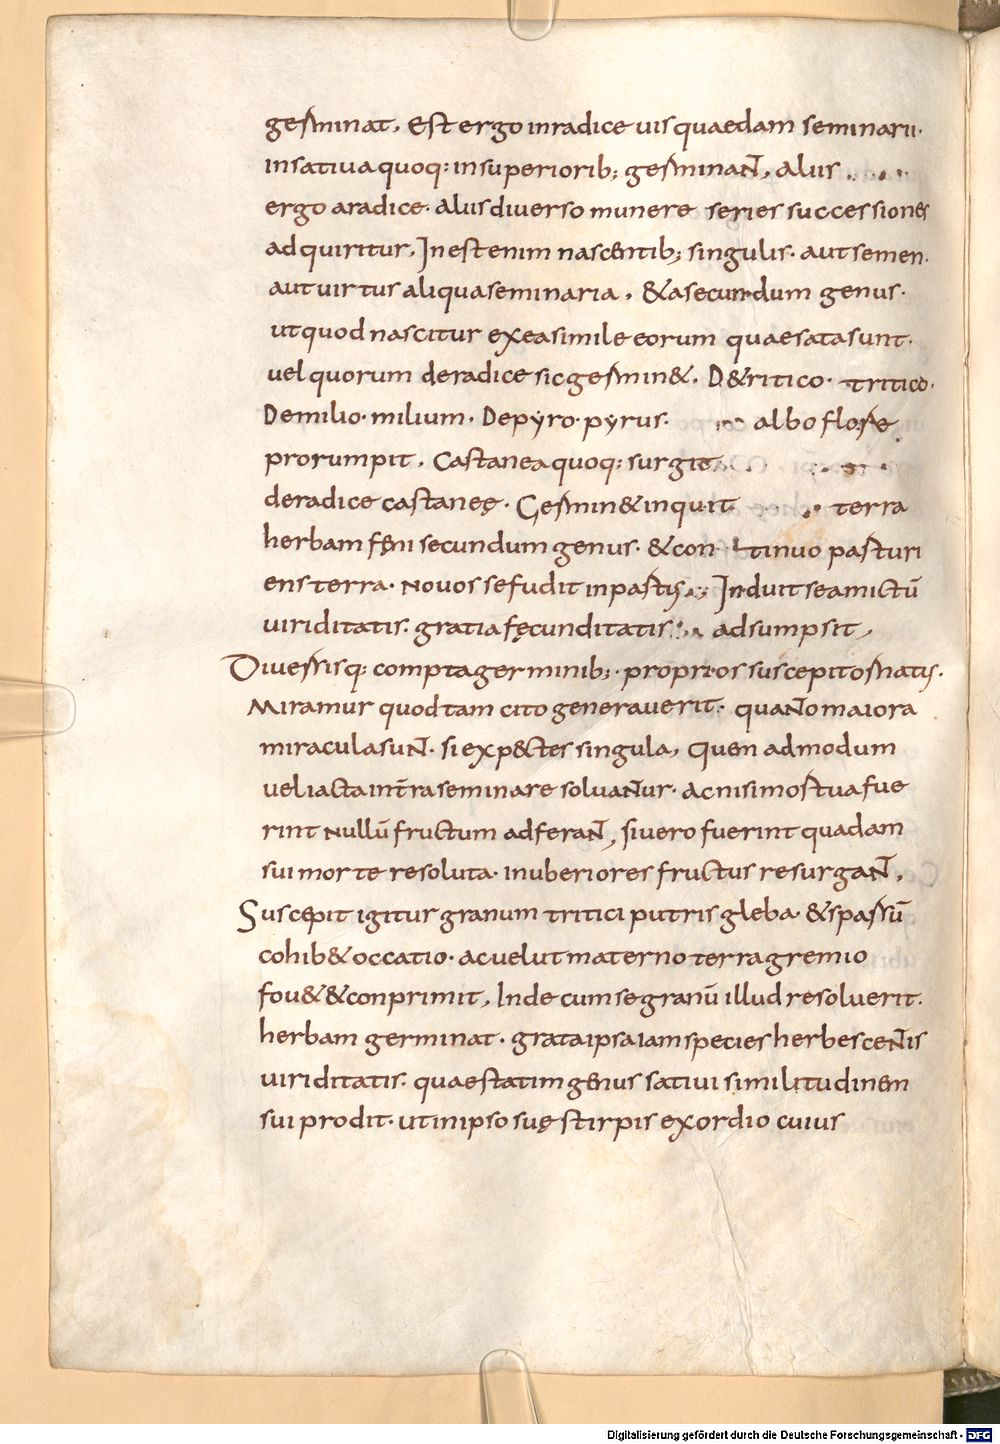 germinat, Est ergo inradice uis quaedam seminarii.
insatiua quoq: insuperiorib; germinaNT, aliis
ergo aradice. aliis diuerso munere series successiones
adquiritur, Inest enim nascentib; singulis. aut semen.
aut uirtus aliqua seminaria, &asecundum genus.
ut quod nascitur ex ea simile eorum quae sata sunt.
uel quorum de radice sic germin&. D&ritico. tritico.
De milio. milium. De pyro. pyrus. albo flore
prorumpit, Castanea quoq: surgit
de radice castaneę. Germin& inquit terra
herbam fęni secundum genus. &con tinuo parturi
ens terra. novos se fudit in partus; Induit se amictū
uiriditatis. gratia fęcunditatis adsumpsit,
Diuersisq; compta germinib;. proprios suscepit ornatus.
Miramur quod tam cito generauerit. quaNTo maiora
miracula suNT. si exp&ctes singula, Quem admodum
uel iacta in t̄ra semina resoluaNTur. ac nisi mortua fue
rint nullū fructum adferaNT, si uero fuerint quadam
sui morte resoluta. in uberiores fructus resurgaNT,
Suscepit igitur granum tritici putris gleba. &sparsū
cohib& occatio. ac uelut materno terra gremio
fou& &conprimit, Inde cum se granū illud resoluerit.
herbam germinat. grata ipsa iam species herbesceNTis
uiriditatis. quae statim genus sativi similitudinem
sui prodit. ut in ipso suę stirpis exordio cuius
Digitalisierung gefördert durch die Deutsche Forschungsgemeinschaft - DFG